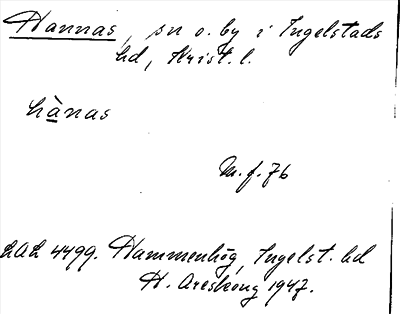 Hannas, sn o. by i Ingelstads
hd, Krist. l.
hànas
M.f. 76
LAL 4499. Hammenhög, Ingelst. hd
H. Areskoug 1947.